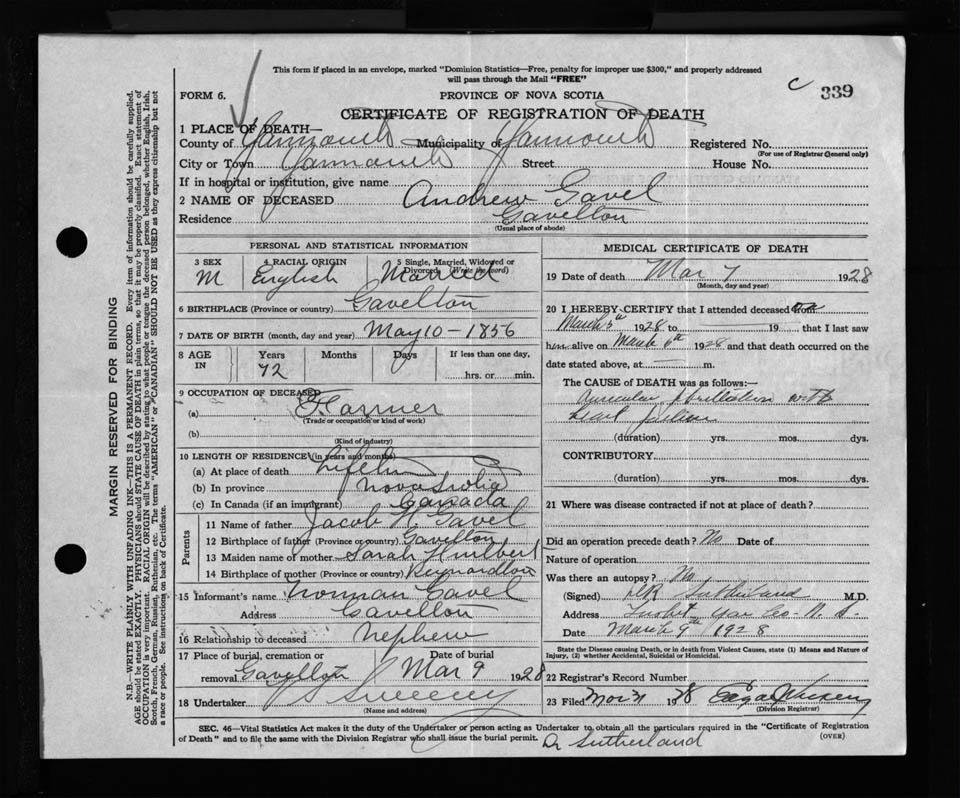 This form if placed in an envelope, marked "Dominion Statistics—Free, penalty for improper use $300," and properly addressed
will pass through the Mail "FREE"
FORM 6.
PROVINCE OF NOVA SCOTIA
C 339
CERTIFICATE OF REGISTRATION OF DEATH
1 PLACE OF DEATH—
County of Yarmouth Municipality of Yarmouth Registered No.
(For use of Registrar General only)
City or Town Yarmouth Street House No.
If in hospital or institution, give name
2 NAME OF DECEASED Andrew Gavel
Residence Gavelton
(Usual place of abode)
PERSONAL AND STATISTICAL INFORMATION
3 SEX 4 RACIAL ORIGIN 5 Single, Married, Widowed or Divorced (Write the word)
M English Married
6 BIRTHPLACE (Province or country) Gavelton
7 DATE OF BIRTH (month, day and year) May 10 – 1856
8 AGE IN Years Months Days If less than one day,
72 hrs. or min.
9 OCCUPATION OF DECEASED
(a) Farmer
(Trade or occupation or kind of work)
(b)
(Kind of industry)
10 LENGTH OF RESIDENCE (in years and months)
(a) At place of death Lifetime
(b) In province Nova Scotia
(c) In Canada (if an immigrant) Canada
Parents
11 Name of father Jacob Gavel
12 Birthplace of father (Province or country) Gavelton
13 Maiden name of mother Sarah Hurlbert
14 Birthplace of mother (Province or country) Reynardton
15 Informant's name Norman Gavel
Address Gavelton
16 Relationship to deceased Nephew
17 Place of burial, cremation or removal Gavelton Date of burial Mar 9 1928
18 Undertaker Sweeny
(Name and address)
MEDICAL CERTIFICATE OF DEATH
19 Date of death Mar 7 1928
(Month, day and year)
20 I HEREBY CERTIFY that I attended deceased from
March 5th 1928 to 19 , that I last saw
him alive on March 6th 1928 and that death occurred on the
date stated above, at m.
The CAUSE OF DEATH was as follows:—
Auricular fibrillation with
heart failure
(duration) yrs. mos. dys.
CONTRIBUTORY
(duration) yrs. mos. dys.
21 Where was disease contracted if not at place of death?
Did an operation precede death? No Date of
Nature of operation
Was there an autopsy? No
(Signed) Sutherland M.D.
Address Tusket Yar Co. N.S.
Date March 9th 1928
State the Disease causing Death, or in death from Violent Causes, state (1) Means and Nature of
Injury, (2) whether Accidental, Suicidal or Homicidal.
22 Registrar's Record Number
23 Filed 1928
(Division Registrar)
SEC. 46—Vital Statistics Act makes it the duty of the Undertaker or person acting as Undertaker to obtain all the particulars required in the "Certificate of Registration
of Death" and to file the same with the Division Registrar who shall issue the burial permit. Dr Sutherland (OVER)
MARGIN RESERVED FOR BINDING
N.B.—WRITE PLAINLY WITH UNFADING INK—THIS IS A PERMANENT RECORD. Every item of information should be carefully supplied.
AGE should be stated EXACTLY. PHYSICIANS should STATE CAUSE OF DEATH in plain terms, so that it may be properly classified. Exact statement of
OCCUPATION is very important. RACIAL ORIGIN will be described by stating to what people or tongue the deceased person belonged, whether English, Irish,
Scotch, French, German, Russian, Ruthenian, etc. The terms "AMERICAN" or "CANADIAN" SHOULD NOT BE USED as they express citizenship but not
a race or people. See instructions on back of Certificate.